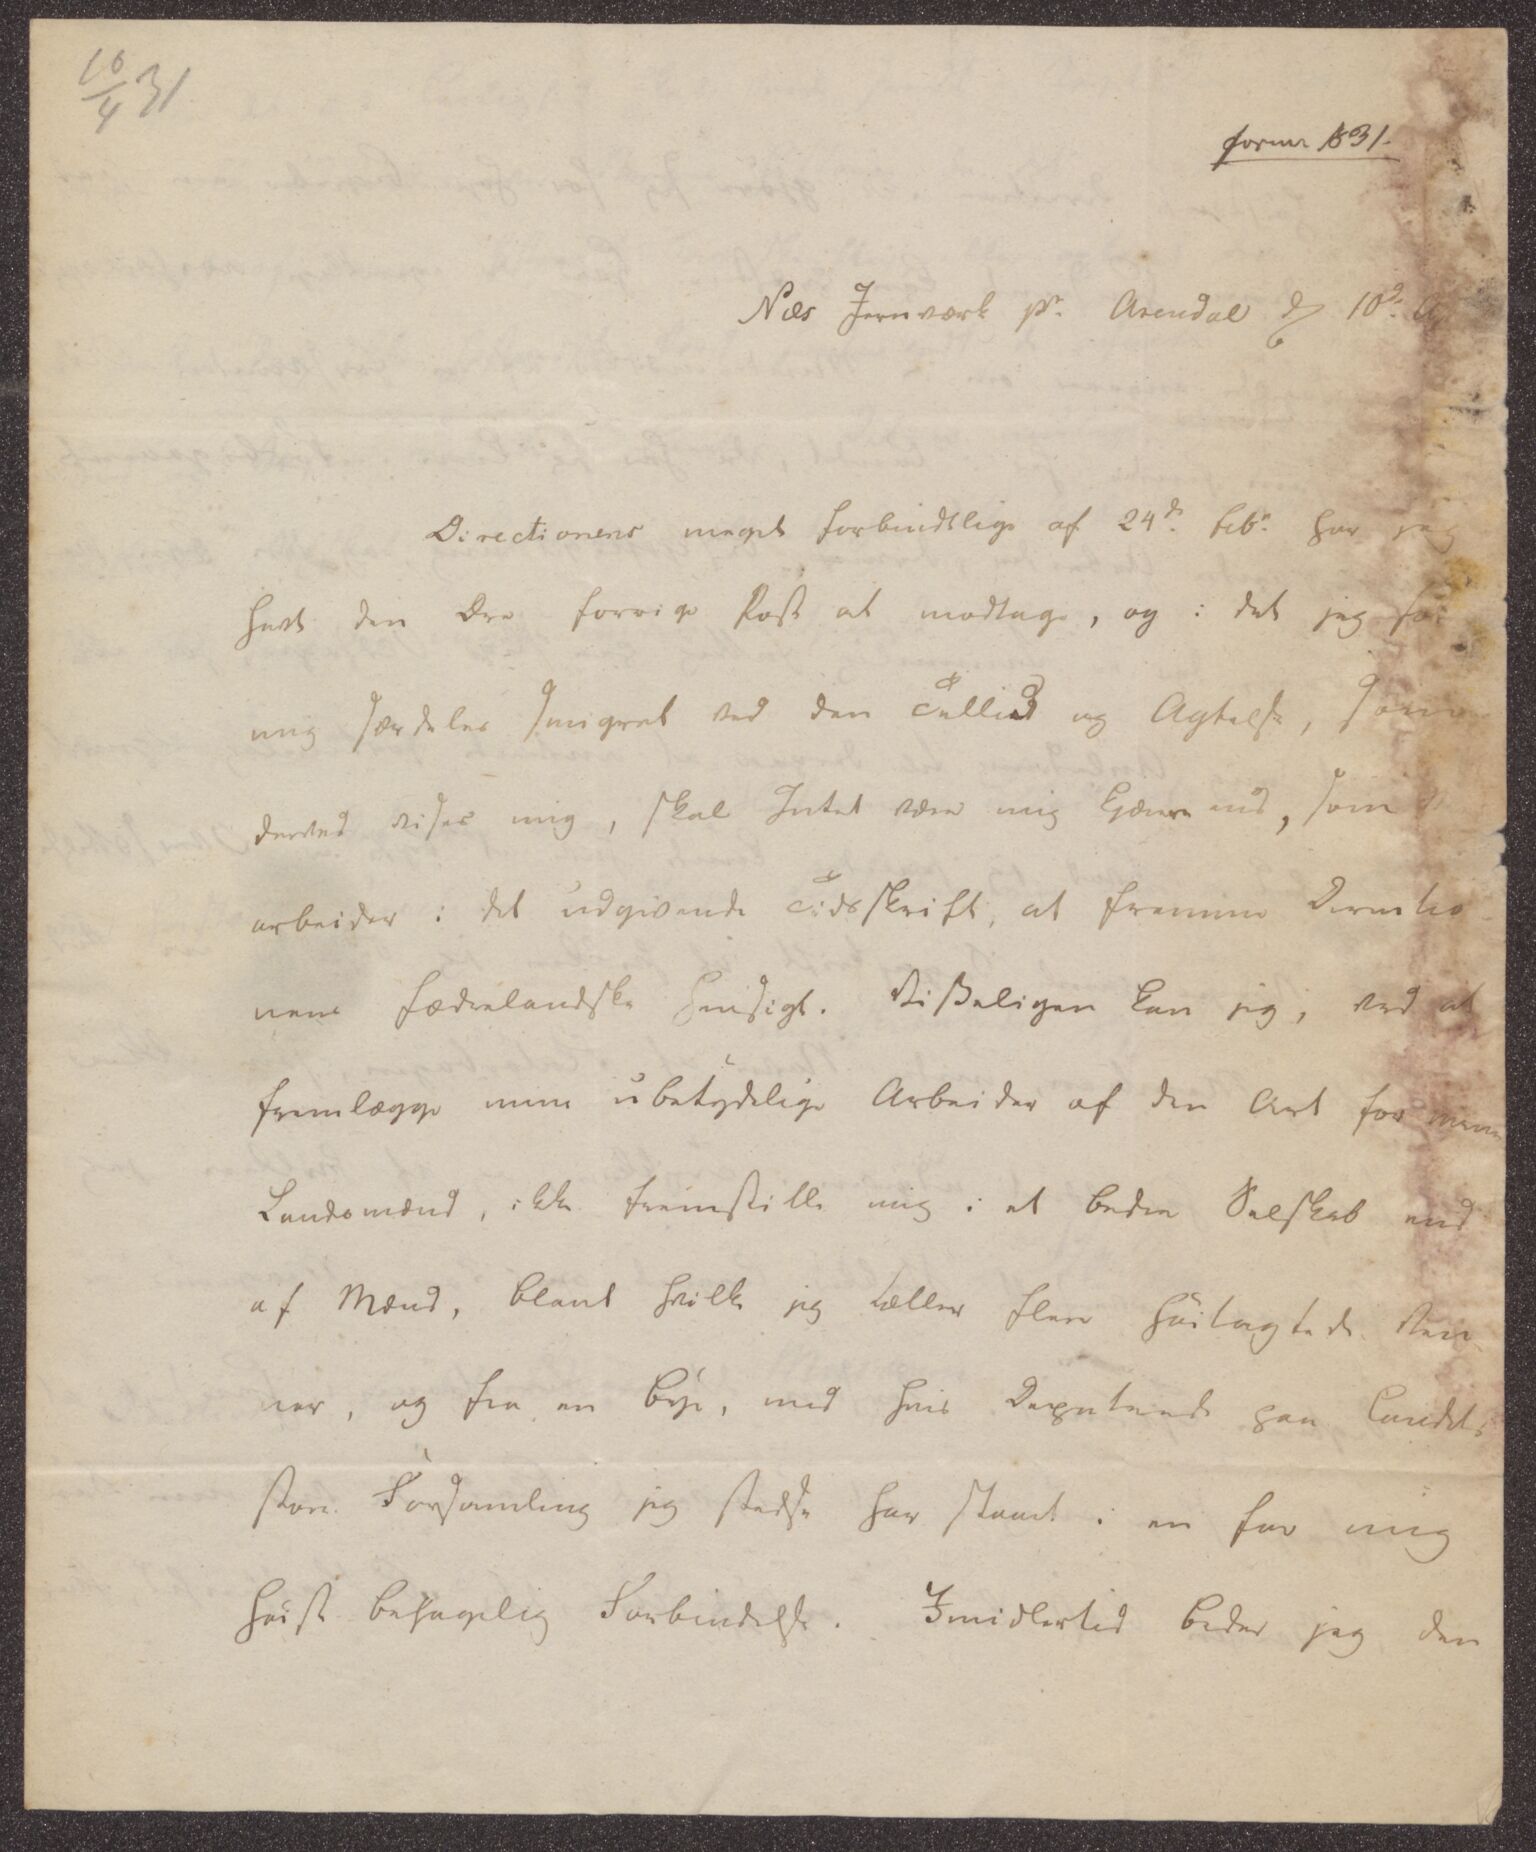 10/4 31
Næs Jernværk pr. Arendal d 10de A
Directionens meget forbindtlige af 24de. Febr. har jeg
havt den Ære forrige Post at modtage, og i det jeg
mig særdeles smigret ved den Tillid og Agtelse, som
derved vises mig, skal Intet være mig kjærere end, som
arbeider i det udgivende Tidsskrift, at fremme Directio-
nens fædrelandske Hensigt. Visseligen kan jeg, ved at
fremlægge mine ubetydelige Arbeider af den Art for mine
Landsmænd, ikke fremstille mig i et bedre Selskab end
af Mænd, blant hvilke jeg tæller flere høitagtede Ven
ner, og fra en Bye, med hvis Deputerede paa Landets
store Forsamling jeg stedse har staaet i en for mig
høist behagelig Forbindelse. Imidlertid beder jeg den